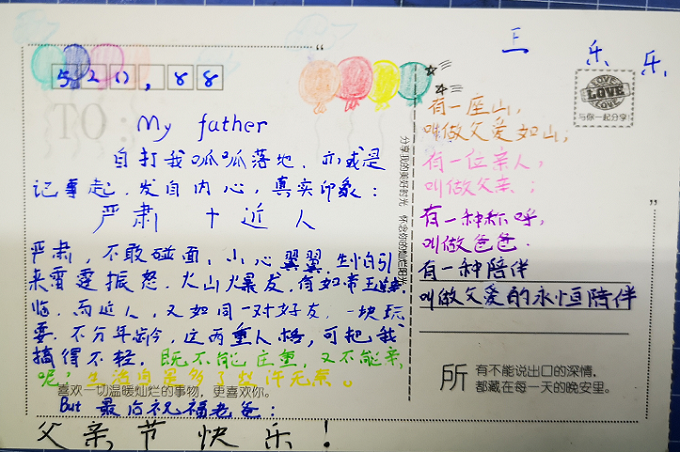 520,88
TO:
My father
自打我呱呱落地,亦或是
记事起,发自内心,真实印象:
严肃 + 近人
严肃,不敢碰面,小心翼翼,生怕引
来雷霆振怒,火山爆发,有如帝王
临,而近人,又如同一对好友,一块玩
耍,不分年龄,这两重人格,可把我
搞得不轻。既不能庄重,又不能亲
呢,生活
喜欢一切温暖灿烂的事物,更喜欢你。
But 最后祝福老爸:
父亲节快乐!
分享我的美好时光
三 乐 乐
LOVE
LOVE
LOVE
与你一起分享!
有一座山,
叫做父爱如山;
有一位亲人,
叫做父亲;
有一种称呼,
叫做爸爸.
有一种陪伴
叫做父爱的永恒陪伴
所有不能说出口的深情,
都藏在每一天的晚安里。